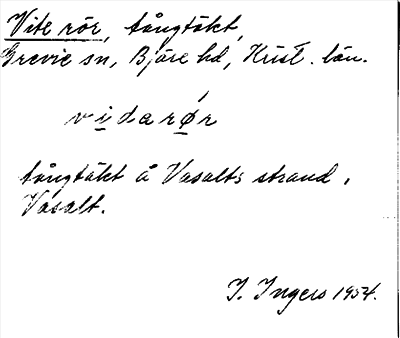 Vite rör, tångtäkt,
Grevie sn, Bjäre hd, Krist. län.
vidarǿr
tångtäkt å Vasalts strand,
Vasalt.
I. Ingers 1954.